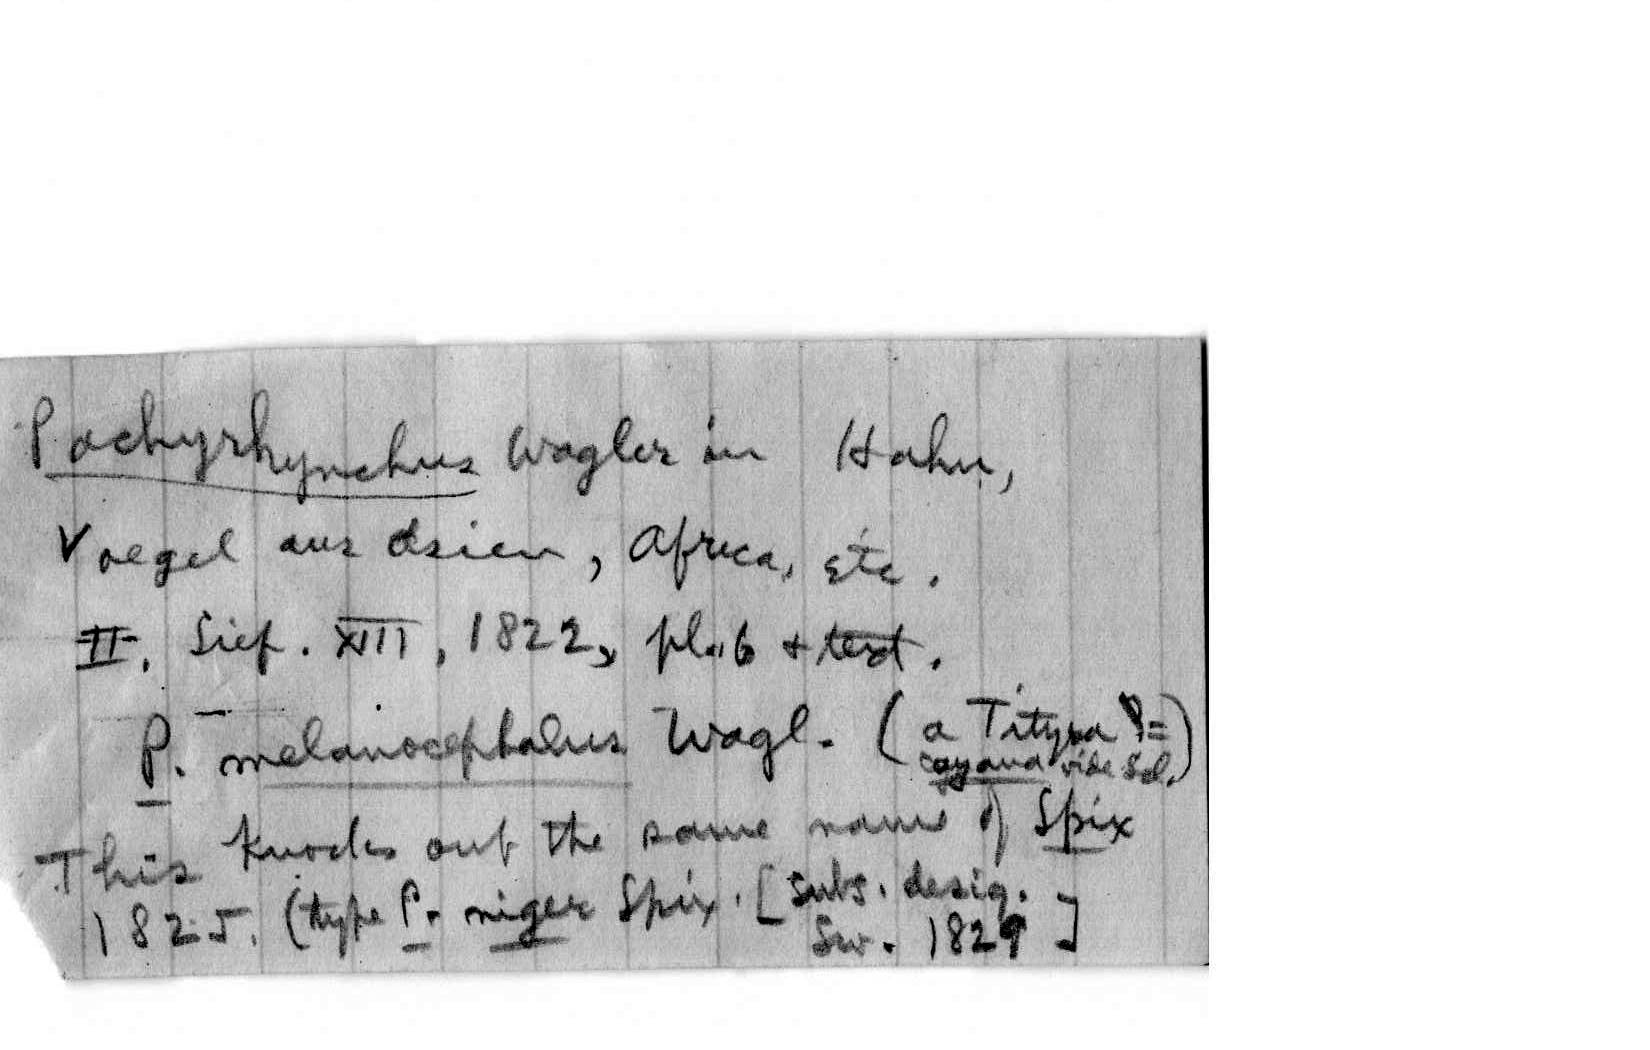 Pachyrhynchus Wagler in Hahn,
Voegel aus Asien, Africa, etc.
II. Lief. XIII, 1822, pl. 6 + text.
P. melanocephalus Wagl. (a Tityra ? =
cayana vide Scl.)
This knocks out the same name of Spix
1825. (type P. niger Spix. [subs. desig.
Sw. 1829]